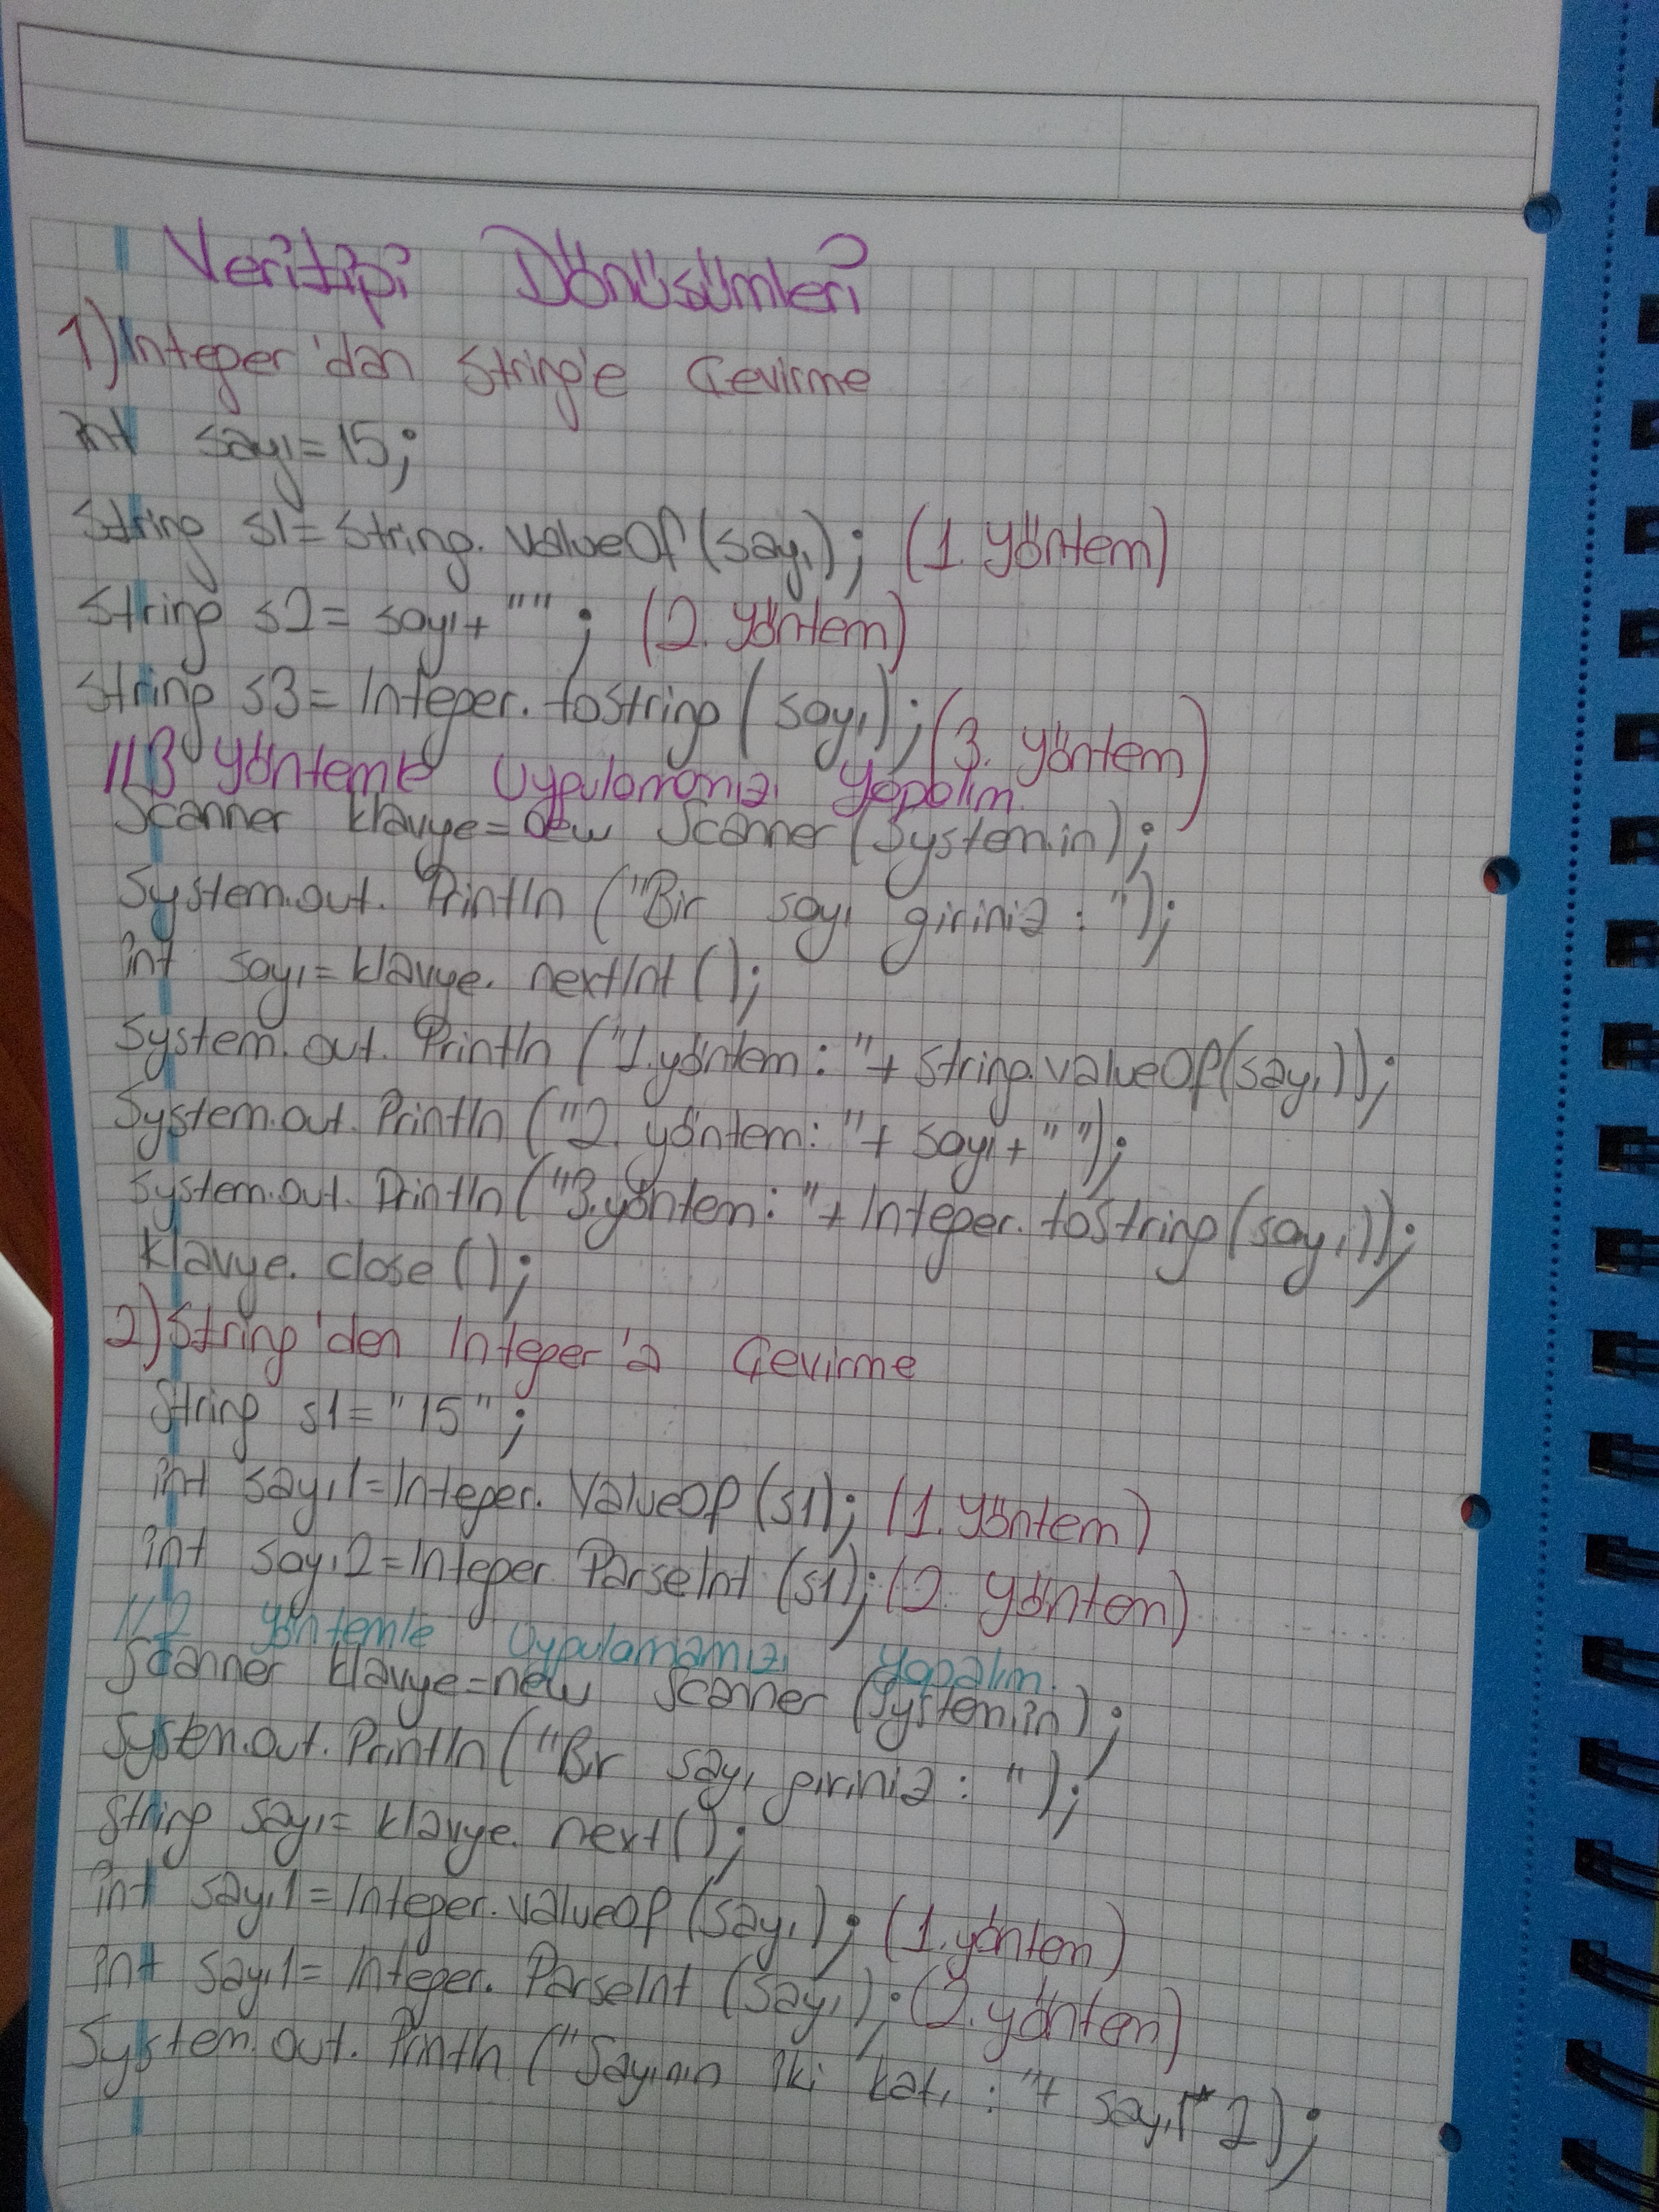 Veritipi Dönüsümleri
1) Integer'dan String'e Çevirme
int sayı=15;
String s1=String.valueOf(sayı); (1. Yöntem)
String s2= sayı+""; (2. Yöntem)
String s3= Integer.toString(sayı); (3. Yöntem)
//3 Yöntemle Uygulamamızı Yapalım.
Scanner klavye=new Scanner(System.in);
System.out.Println ("Bir sayı giriniz : ");
int sayı=klavye.nextInt();
System.out.Println ("1.yöntem: "+String.valueOf(sayı));
System.out.Println ("2. yöntem: "+ sayı+" ");
System.out.Println("3.yöntem: "+Integer.toString(sayı));
klavye.close();
2) String'den Integer'a Çevirme
String s1="15";
int sayı1=Integer.ValueOf(s1); (1. Yöntem)
int sayı2=Integer.ParseInt (s1); (2. Yöntem)
//2 Yöntemle Uygulamamızı Yapalım.
Scanner klavye=new Scanner (System.in);
System.out.Println("Bir sayı giriniz : ");
String sayı= klavye.next();
int sayı1=Integer.valueOf(sayı); (1.yöntem)
int sayı1= Integer.ParseInt (sayı); (2.yöntem)
System.out.Println ("Sayının iki katı : "+ sayı1*2);